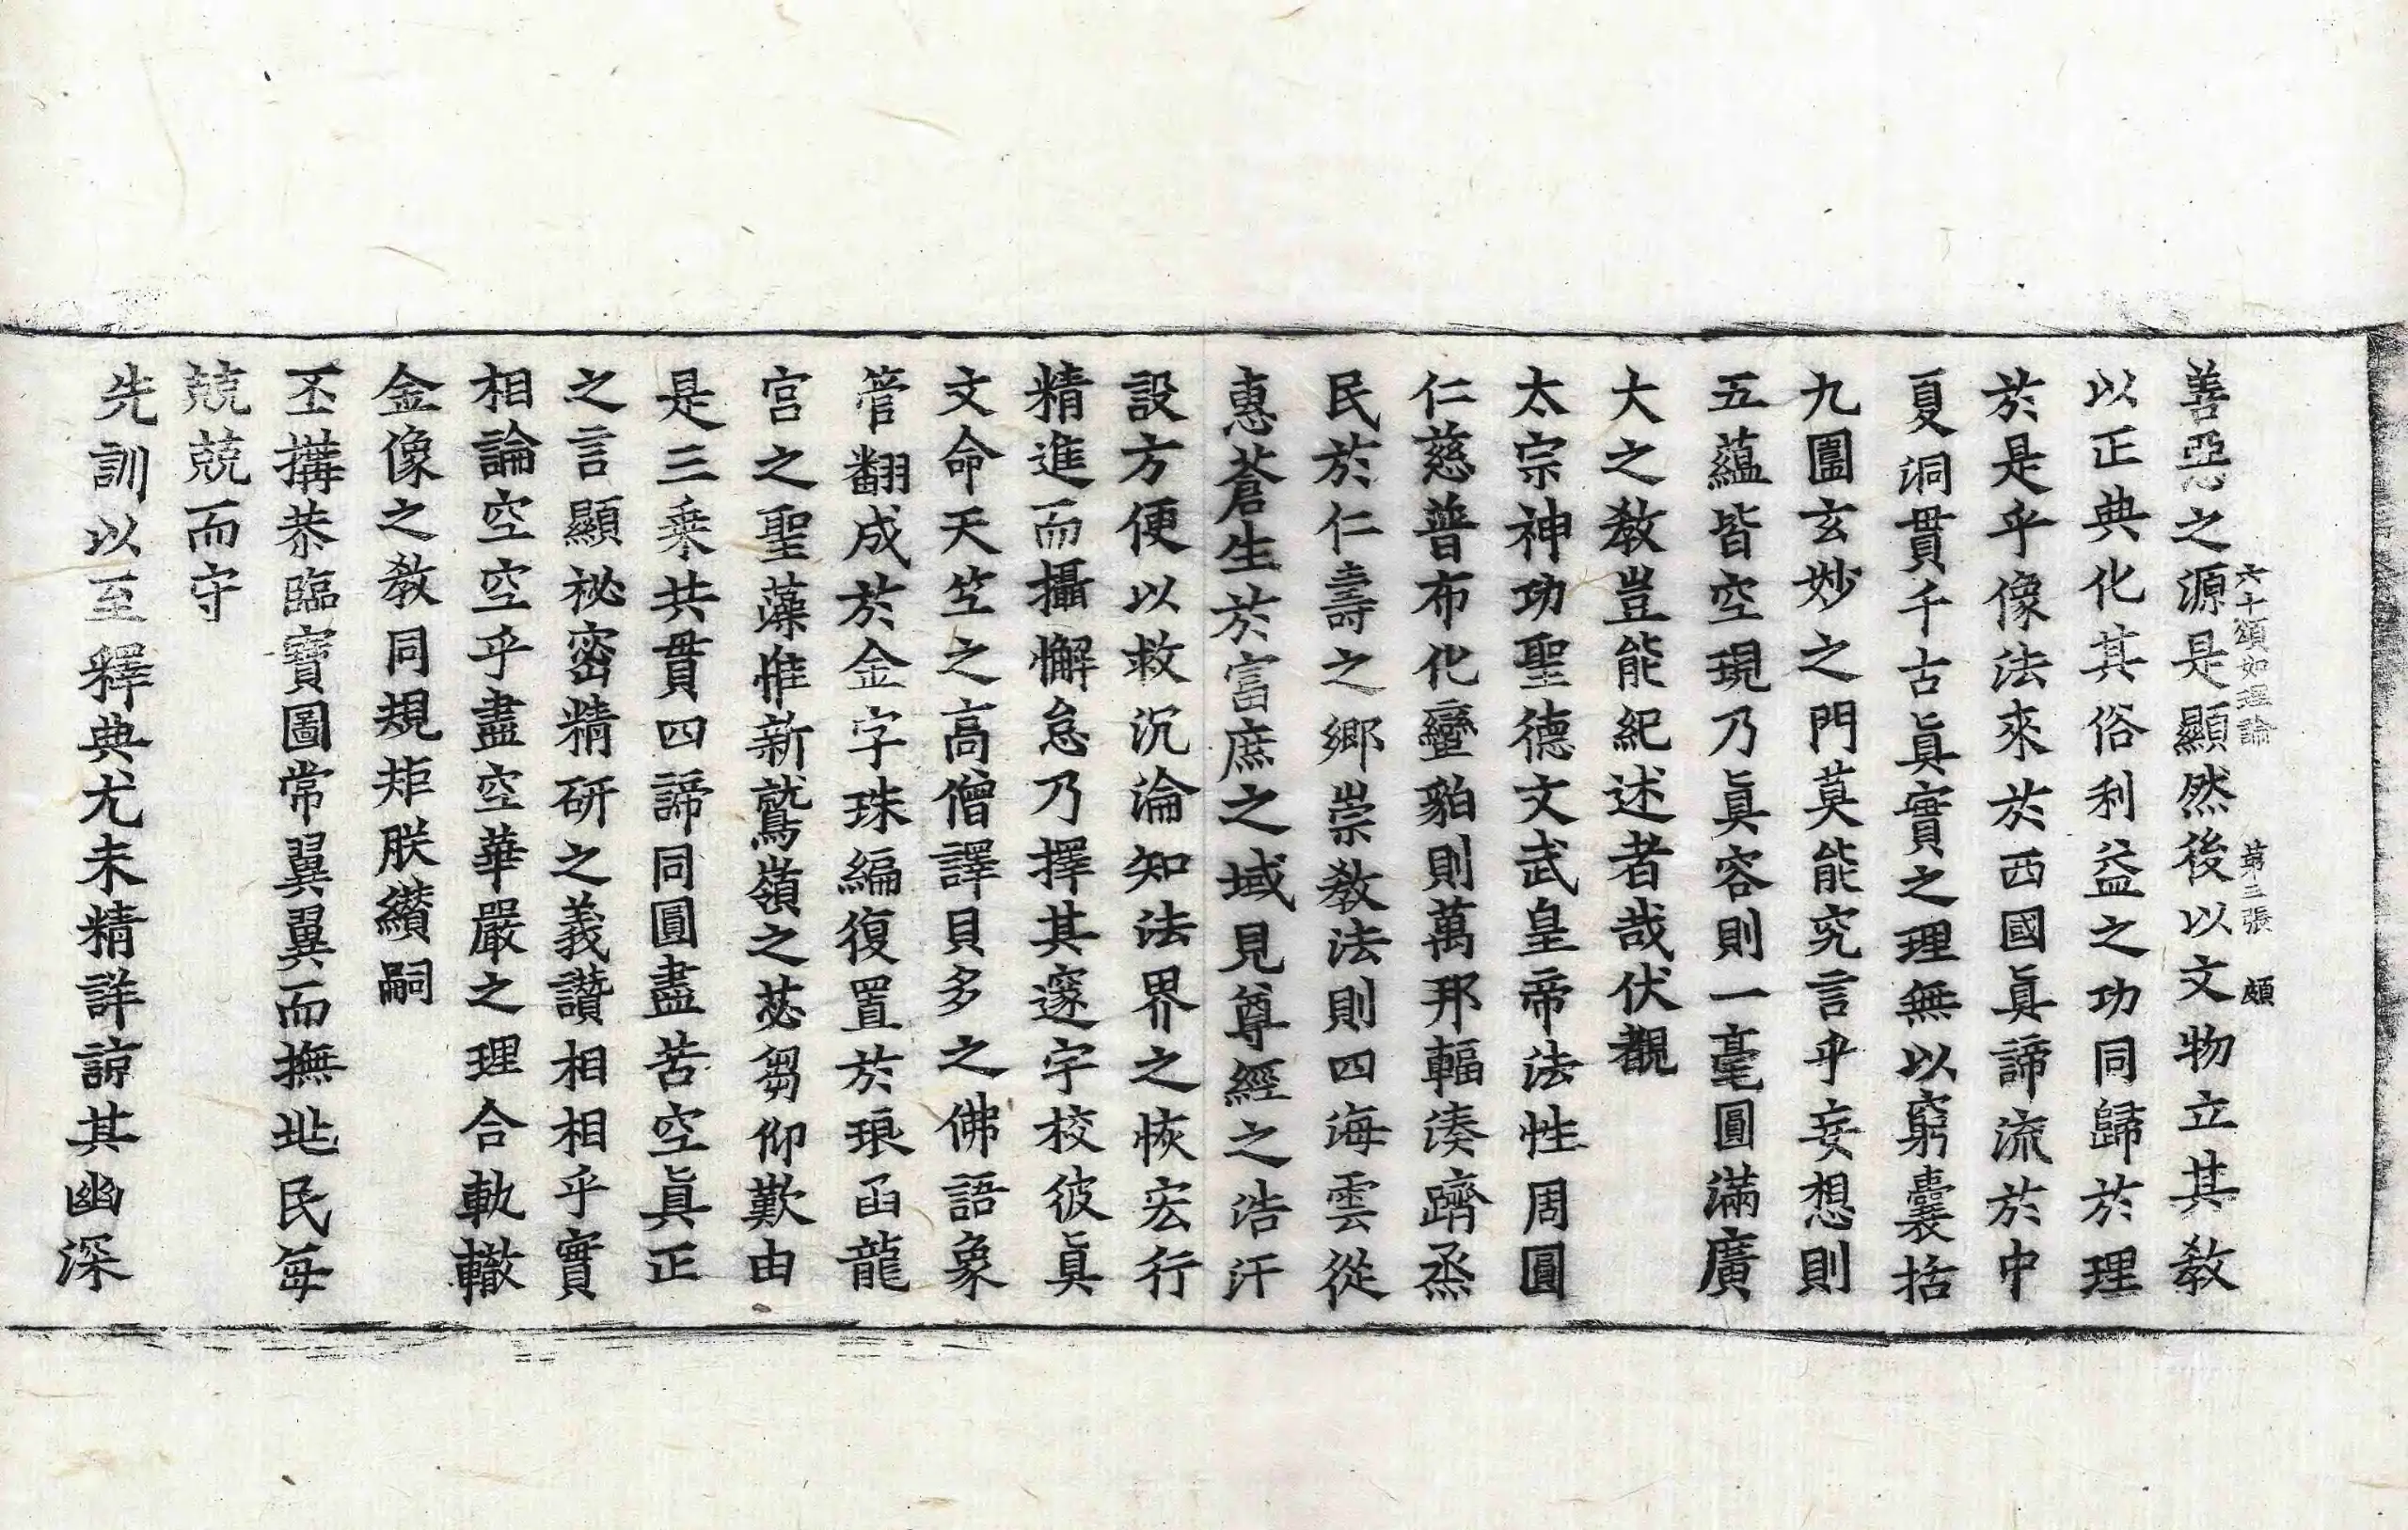 六十頌如理論　第二張　頗
善惡之源是顯然後以文物立其教
以正典化其俗利益之功同歸於理
於是乎像法來於西國眞諦流於中
夏洞貫千古眞實之理無以窮囊括
九圍玄妙之門莫能究言乎妄想則
五蘊皆空現乃眞容則一毫圓滿廣
大之教豈能紀述者哉伏觀
太宗神功聖德文武皇帝法性周圓
仁慈普布化蠻貊則萬邦輻湊躋烝
民於仁壽之鄉崇教法則四海雲從
惠蒼生於富庶之域見尊經之浩汗
設方便以救沉淪知法界之恢宏行
精進而攝懈怠乃擇其邃宇校彼眞
文命天竺之高僧譯貝多之佛語象
管翻成於金字珠編復置於琅函龍
宮之聖藻惟新鷲嶺之苾芻仰歎由
是三乗共貫四諦同圓盡苦空眞正
之言顯祕密精研之義讚相相乎實
相論空空乎盡空華嚴之理合軌轍
金像之教同規矩朕纘嗣
丕搆恭臨寶圖常翼翼而撫㘴民每
兢兢而守
先訓以至釋典尤未精詳諒其幽深